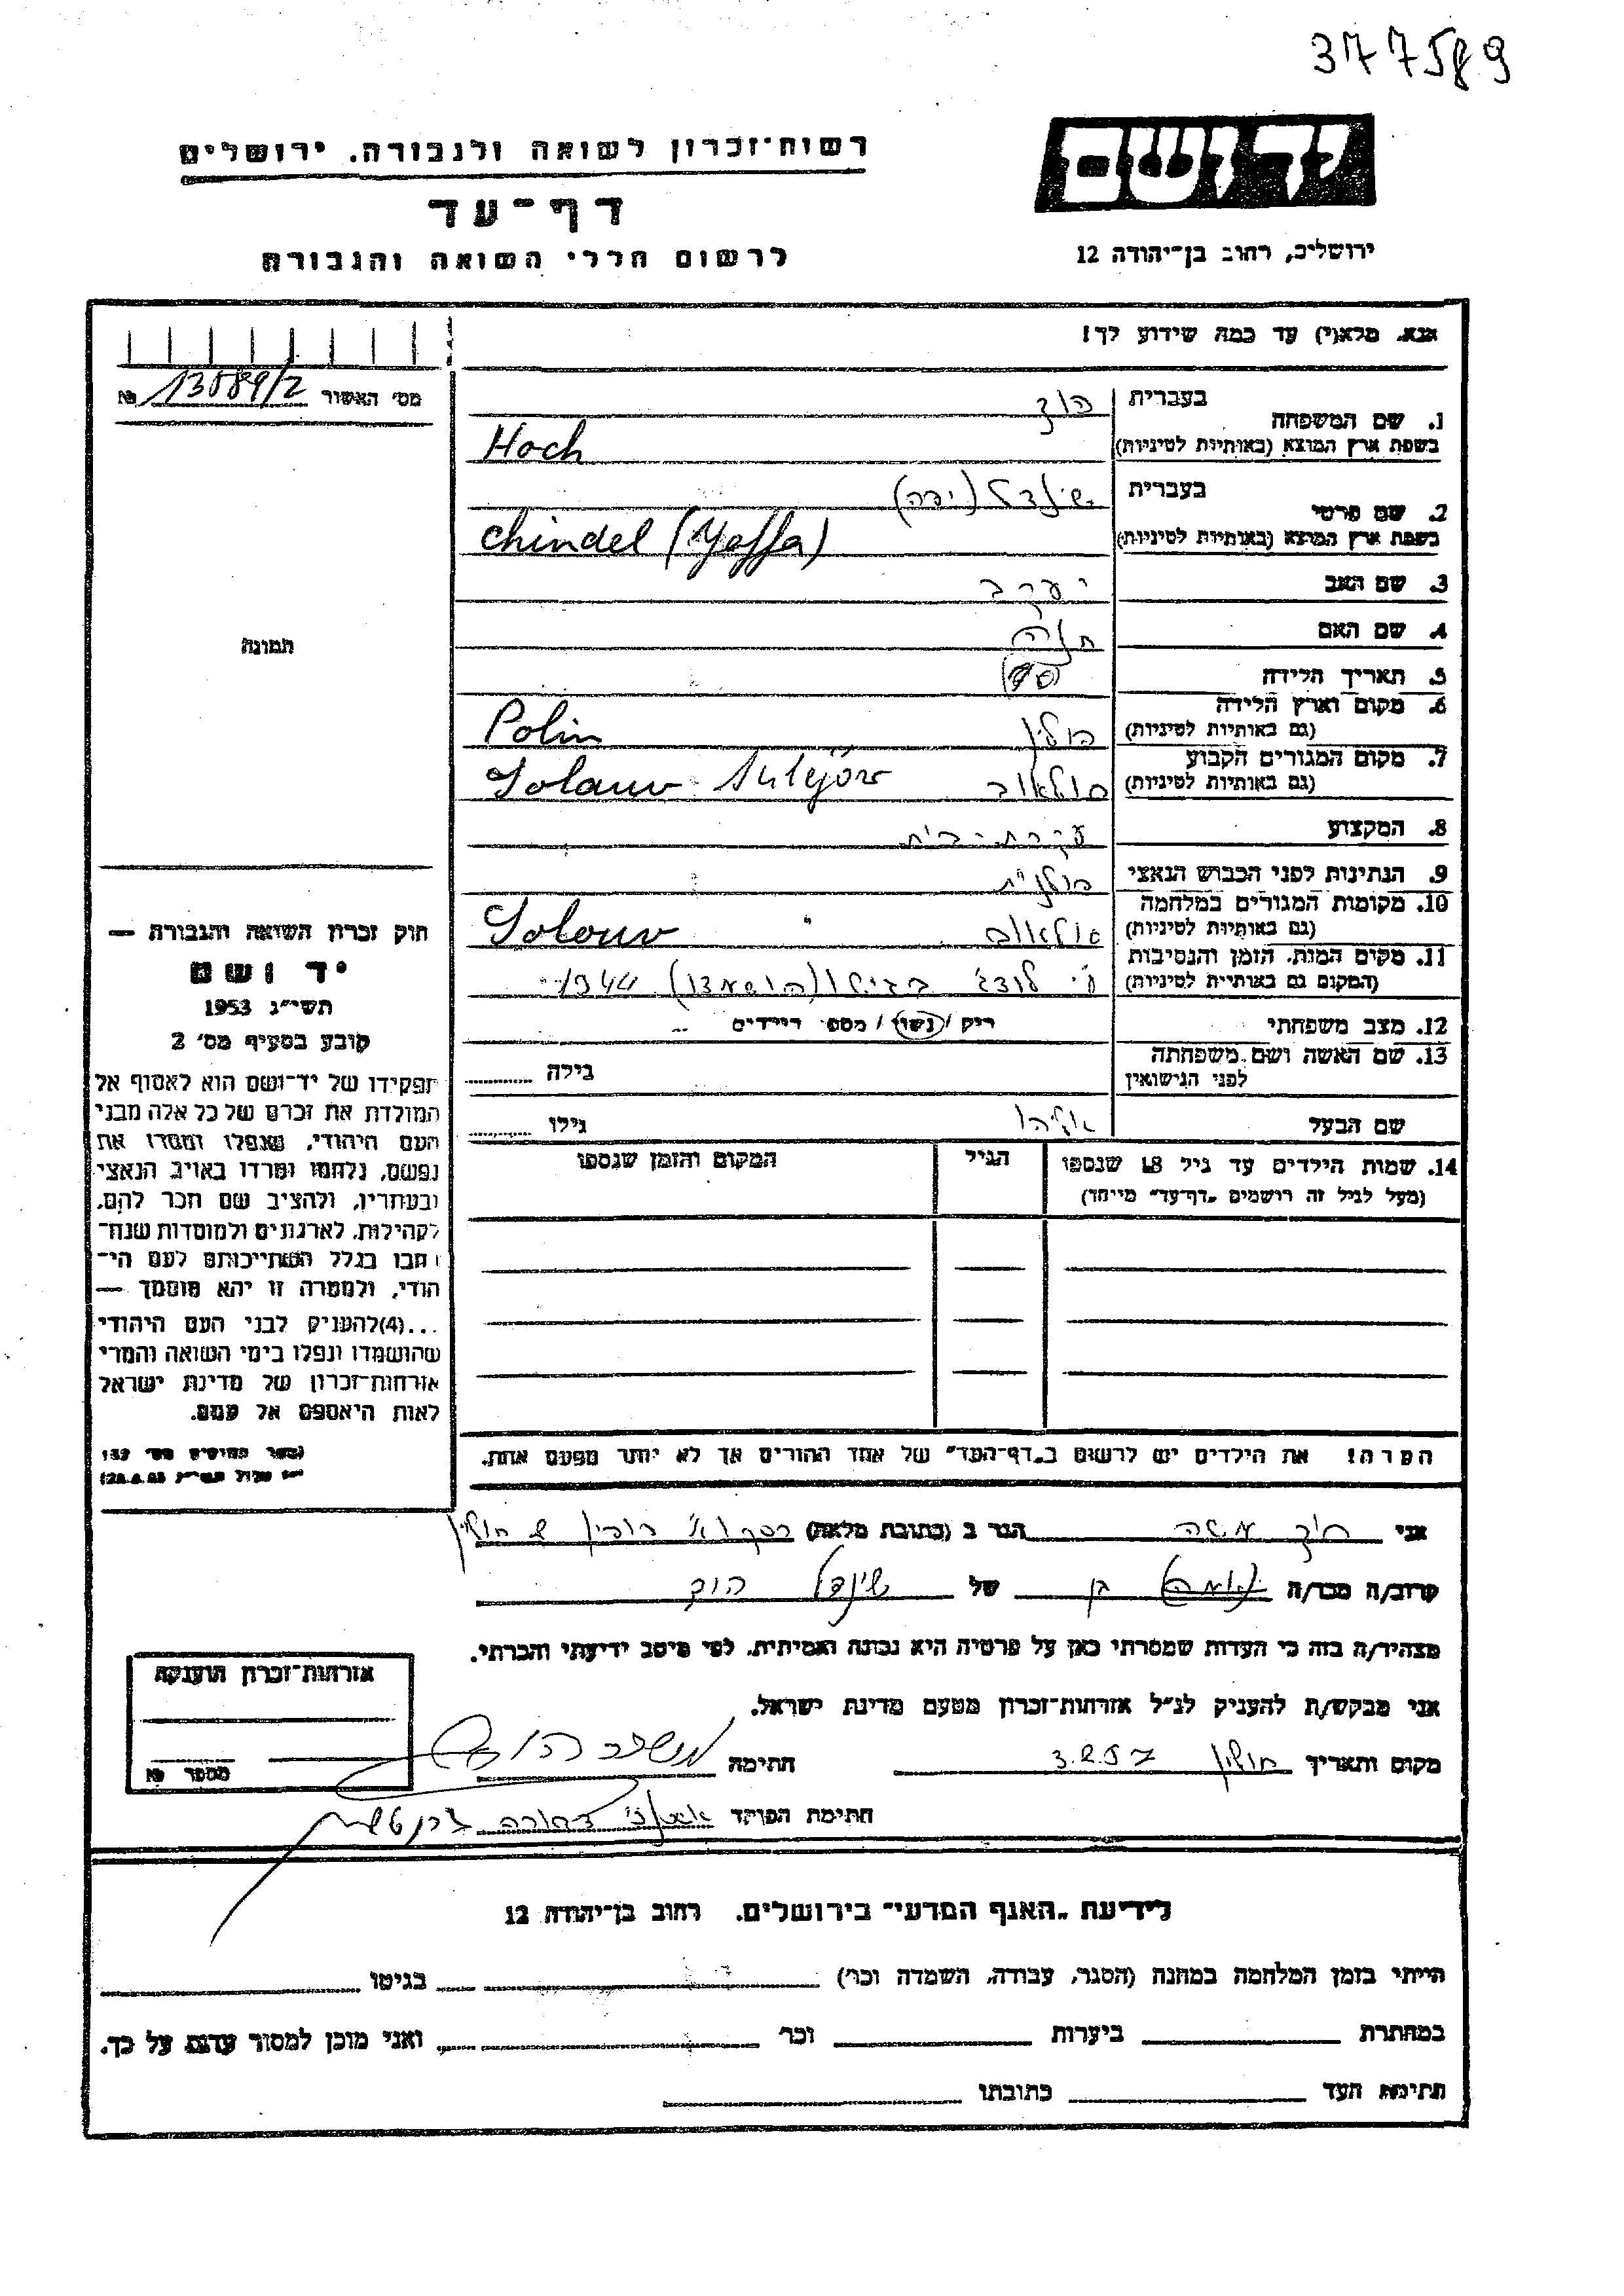 377589
רשות־זכרון לשואה ולגבורה. ירושלים
יד ושם
דף־עד
לרשום חללי השואה והגבורה
ירושלים, רחוב בן־יהודה 12
אנא. מלא(י) עד כמה שידוע לך!
מס׳ האשור 13589/2 №
1. שם המשפחה
בעברית הוך
בשפת ארץ המוצא (באותיות לטיניות) Hoch
2. שם פרטי
בעברית שינדל (יפה)
בשפת ארץ המוצא (באותיות לטיניות) Chindel (Yaffa)
3. שם האב יעקב
4. שם האם חנה
תמונה
5. תאריך הלידה
6. מקום וארץ הלידה
(גם באותיות לטיניות) פולין Polin
7. מקום המגורים הקבוע
(גם באותיות לטיניות) סולאוב Solauv Sulejów
8. המקצוע עקרת-בית
9. הנתינות לפני הכבוש הנאצי פולנית
10. מקומות המגורים במלחמה
(גם באותיות לטיניות) Solouv
11. מקום המות. הזמן והנסיבות
(המקום גם באותיות לטיניות) 1944
12. מצב משפחתי רוק / נשוי / מספר הילדים
13. שם האשה ושם משפחתה
לפני הנישואין גילה
שם הבעל גילו
14. שמות הילדים עד גיל 18 שנספו הגיל המקום והזמן שנספו
(מעל לגיל זה רושמים „דף־עד״ מיוחד)
חוק זכרון השואה והגבורה —
יד ושם
תשי״ג 1953
קובע בסעיף מס׳ 2
תפקידו של יד־ושם הוא לאסוף אל
המולדת את זכרם של כל אלה מבני
העם היהודי, שנפלו ומסרו את
נפשם, נלחמו ומרדו באויב הנאצי
ובעוזריו, ולהציב שם וזכר להם,
לקהילות, לארגונים ולמוסדות שנח־
רבו בגלל השתייכותם לעם הי־
הודי, ולמטרה זו יהא מוסמך —
...(4)להעניק לבני העם היהודי
שהושמדו ונפלו בימי השואה והמרי
אזרחות־זכרון של מדינת ישראל
לאות היאספם אל עמם.
הערה! את הילדים יש לרשום ב„דף־העד״ של אחד ההורים אך לא יותר מפעם אחת.
אני הוך משה הגר ב (כתובת מלאה)
קרוב/ה מכר/ה בן של שינדל הוך
מצהיר/ה בזה כי העדות שמסרתי כאן על פרטיה היא נכונה ואמיתית. לפי מיטב ידיעתי והכרתי.
אני מבקש/ת להעניק לנ״ל אזרחות־זכרון מטעם מדינת ישראל.
מקום ותאריך חולון 3.2.57 חתימה משה הוך
חתימת הפוקד
אזרחות־זכרון הוענקה
מספר №
לידיעת „האגף המדעי״ בירושלים. רחוב בן־יהודה 12
הייתי בזמן המלחמה במחנה (הסגר, עבודה, השמדה וכו׳) בגיטו
במחתרת ביערות וכו׳ ואני מוכן למסור עדות על כך.
חתימת העד כתובתו